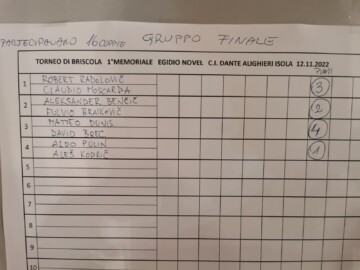 PARTECIPAVANO 16 COPPIE GRUPPO FINALE
TORNEO DI BRISCOLA 1°MEMORIALE EGIDIO NOVEL C.I. DANTE ALIGHIERI ISOLA 12.11.2022
PUNTI
1 ROBERT RADOLOVIČ 3
CLAUDIO MOSCARDA
2 ALEKSANDER BENČIČ 2
FULVIO BRAIKOVIČ
3 MATTEO DUNIS 4
DAVID BOEC
4 ALDO PULIN 1
ALEŠ KODRIČ
5
6
7
8
9
10